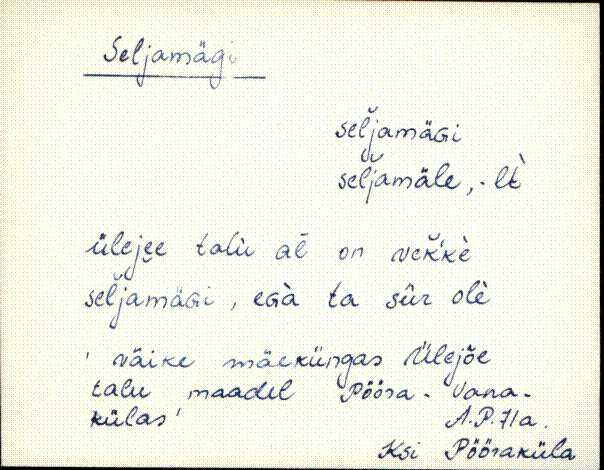 Seljamägi
seľjamäGi
seľjamäle, -lt̀
ülejee talù al̄ on veìk̆k̀è
seľjamäGi, eGà ta sūr olè
' väike mäeküngas Ülejõe
talu maadel Pööra-Vana-
külas'
A.P. 71a.
Ksi Pööraküla